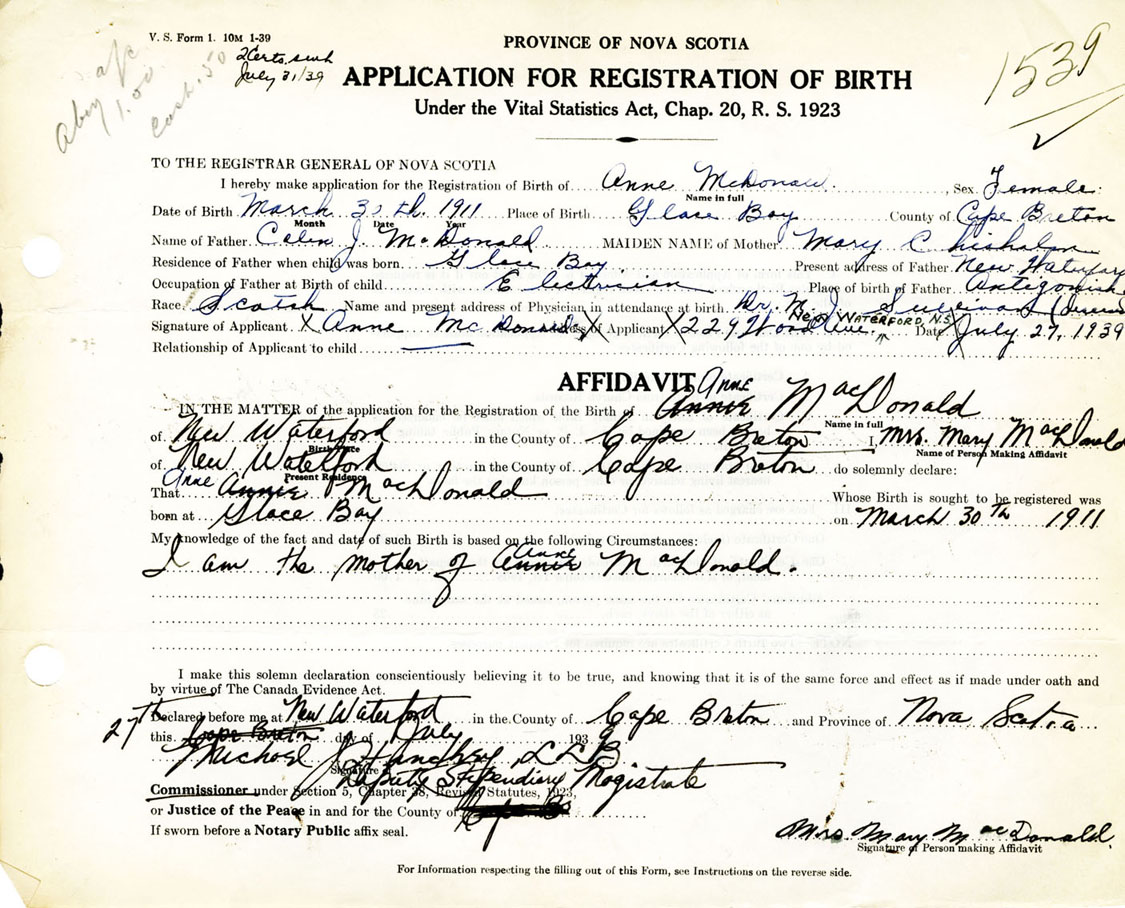 V. S. Form 1. 10M 1-39
2 Certs. sent
July 31/39
a/c
1.00
cash .50
1539
PROVINCE OF NOVA SCOTIA
APPLICATION FOR REGISTRATION OF BIRTH
Under the Vital Statistics Act, Chap. 20, R. S. 1923
TO THE REGISTRAR GENERAL OF NOVA SCOTIA
I hereby make application for the Registration of Birth of Anne McDonald, Sex Female
Name in full
Date of Birth March 30th. 1911 Place of Birth Glace Bay County of Cape Breton
Month Date Year
Name of Father Colin J. McDonald MAIDEN NAME of Mother Mary Chisholm
Residence of Father when child was born Glace Bay Present address of Father New Waterford
Occupation of Father at Birth of child Electrician Place of birth of Father Antigonish
Race Scotch Name and present address of Physician in attendance at birth Dr. M. J. Sullivan
NEW WATERFORD N.S.
Signature of Applicant X Anne McDonald Address of Applicant X 229 Wood Ave. Date July 27, 1939
Relationship of Applicant to child
AFFIDAVIT
Anne
IN THE MATTER of the application for the Registration of the Birth of Annie MacDonald
Name in full
of New Waterford in the County of Cape Breton I, Mrs. Mary MacDonald
Birth Place Name of Person Making Affidavit
of New Waterford in the County of Cape Breton do solemnly declare:
Present Residence
Anne
That Annie MacDonald Whose Birth is sought to be registered was
born at Glace Bay on March 30th 1911
My knowledge of the fact and date of such Birth is based on the following Circumstances:
Anne
I am the mother of Annie MacDonald.
I make this solemn declaration conscientiously believing it to be true, and knowing that it is of the same force and effect as if made under oath and
by virtue of The Canada Evidence Act.
Declared before me at New Waterford in the County of Cape Breton and Province of Nova Scotia
27th
this Cape Breton day of July 1939
Michael J. LLB
Signature
Deputy Stipendiary Magistrate
Commissioner under Section 5, Chapter 38, Revised Statutes, 1923,
or Justice of the Peace in and for the County of Cape
If sworn before a Notary Public affix seal.
Mrs. Mary MacDonald.
Signature of Person making Affidavit
For Information respecting the filling out of this Form, see Instructions on the reverse side.